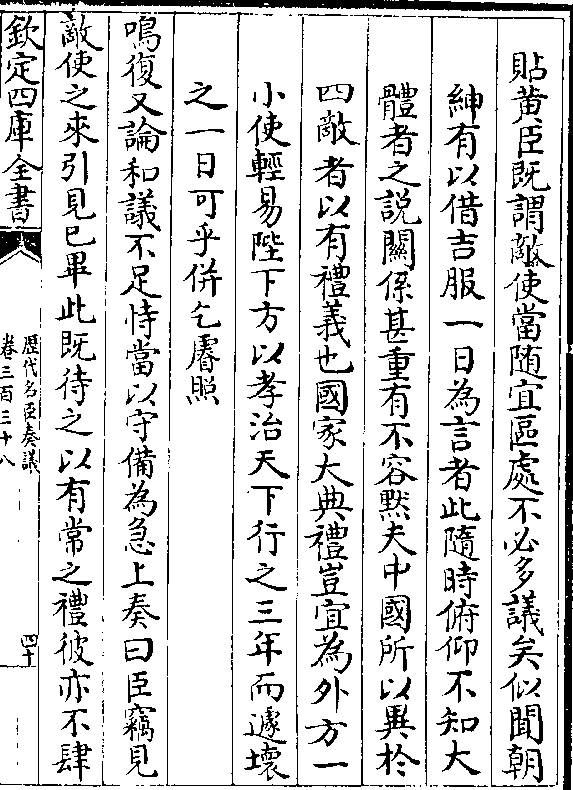 貼黄臣既謂敵使當隨宜區處不必多議矣似聞朝
紳有以借吉服一日為言者此隨時俯仰不知大
體者之說關係甚重有不容黙夫中國所以異於
四敵者以有禮義也國家大典禮豈宜為外方一
小使輕易陛下方以孝治天下行之三年而遽壞
之一日可乎併乞睿照
鳴復又論和議不足恃當以守備為急上奏曰臣竊見
敵使之來引見已畢此既待之以有常之禮彼亦不肆
欽定四庫全書
歷代名臣奏議
卷三百三十八
四十